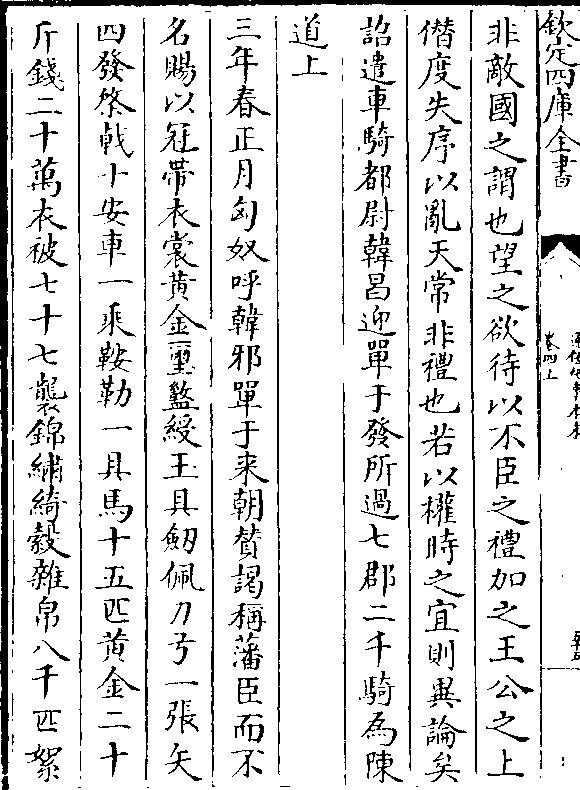 欽定四庫全書
卷四上
非敵國之謂也望之欲待以不臣之禮加之王公之上
僭度失序以亂天常非禮也若以權時之宜則異論矣
詔遣車騎都尉韓昌迎單于發所過七郡二千騎為陳
道上
三年春正月匈奴呼韓邪單于来朝賛謁稱藩臣而不
名賜以冠帶衣裳黄金璽盭綬玉具劒佩刀弓一張矢
四發棨㦸十安車一乘鞍勒一具馬十五匹黄金二十
斤錢二十萬衣被七十七襲錦繡綺縠雜帛八千匹絮